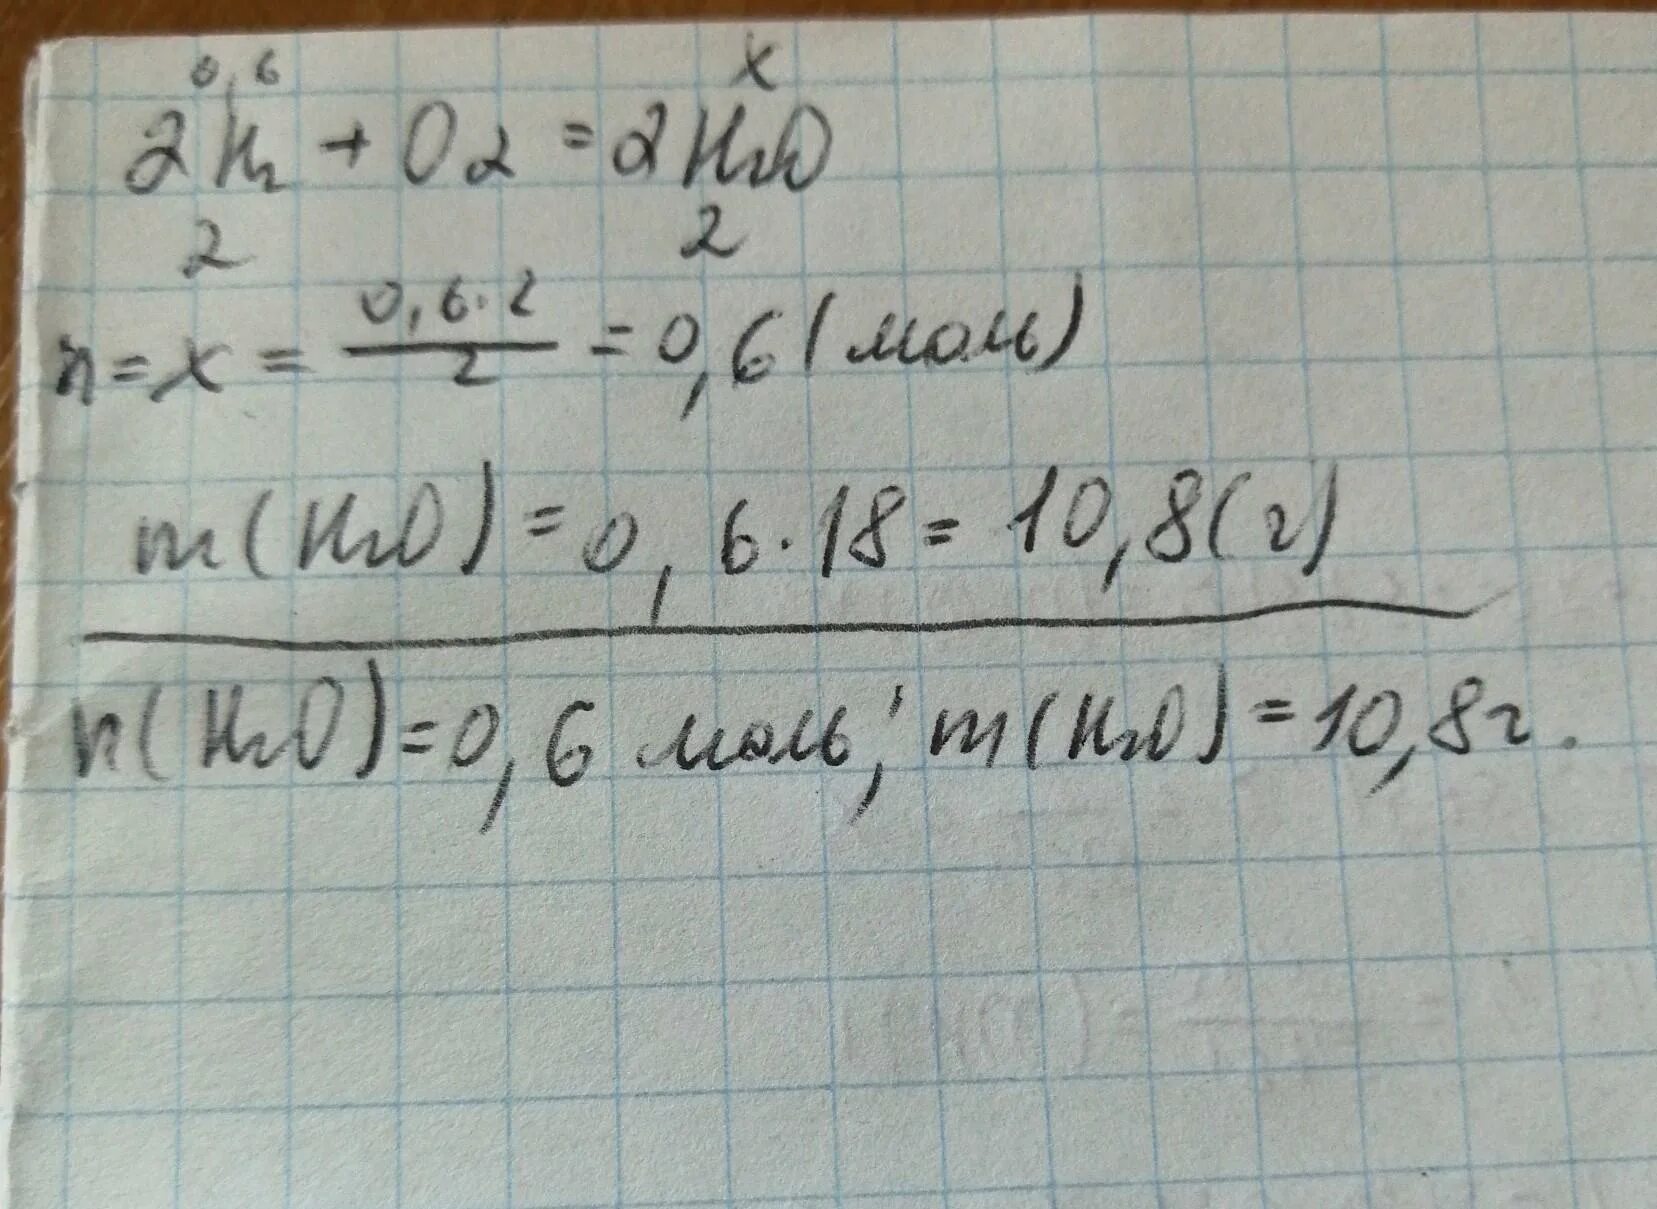 0,6 x
2H2 + O2 = 2H2O
2 2
n = x = 0,6·2/2 = 0,6 (моль)
m(H2O) = 0,6·18 = 10,8 (г)
n(H2O) = 0,6 моль; m(H2O) = 10,8г.